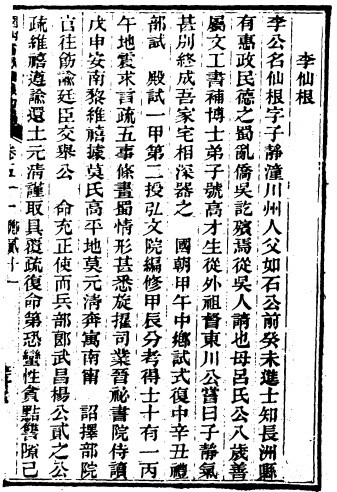 李仙根
李公名仙根字子靜潼川州人父如石公前癸未進士知長洲縣
有惠政民德之蜀亂僑吳訖殯焉從吳人請也母呂氏公八歲善
屬文工書補博士弟子號高才生從外祖督東川公嘗曰子靜氣
甚別終成吾家宅相深器之　國朝甲午中鄉試式復中辛丑禮
部試　殿試一甲第二授弘文院編修甲辰分考得士十有一丙
午地震求言疏五事條畫蜀情形甚悉旋擢司業晉祕書院侍讀
戊申安南黎維禧據莫氏高平地莫元清奔寓南甯　詔擇部院
官往飭諭廷臣交舉公　命充正使而兵部郎武昌楊公貳之公
疏維禧遵諭還土元清謹取具覆疏復命第恐蠻性貪黠讐隙已